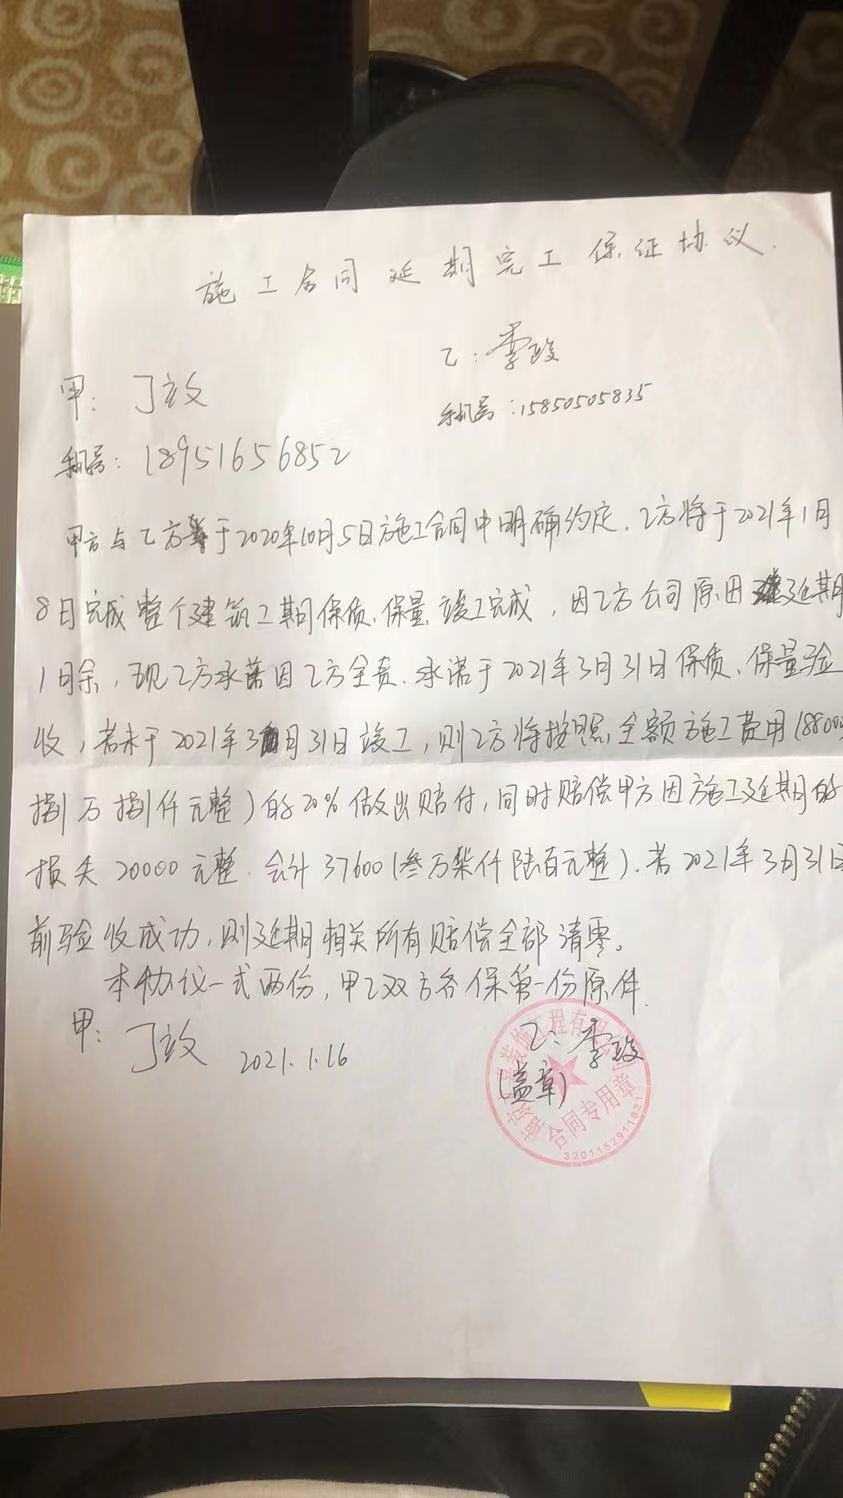 施工合同延期完工保证协议.
甲: 丁政
乙: 李政
手机号: 18951656852
手机号: 15850505835
甲方与乙方于2020年10月5日施工合同中明确约定, 乙方将于2021年1月
8日完成整个建筑工期保质、保量、竣工完成, 因乙方公司原因延期
1日余, 现乙方承诺因乙方全责. 承诺于2021年3月31日保质、保量验
收, 若未于2021年3月31日竣工, 则乙方将按照全额施工费用(88000
捌万捌仟元整)的20%做出赔付, 同时赔偿甲方因施工延期的
损失20000元整. 合计37600(叁万柒仟陆百元整). 若2021年3月31日
前验收成功, 则延期相关所有赔偿全部清零。
本协议一式两份, 甲乙双方各保第一份原件.
甲: 丁政 2021.1.16
乙: 李政
(盖章)
合同专用章